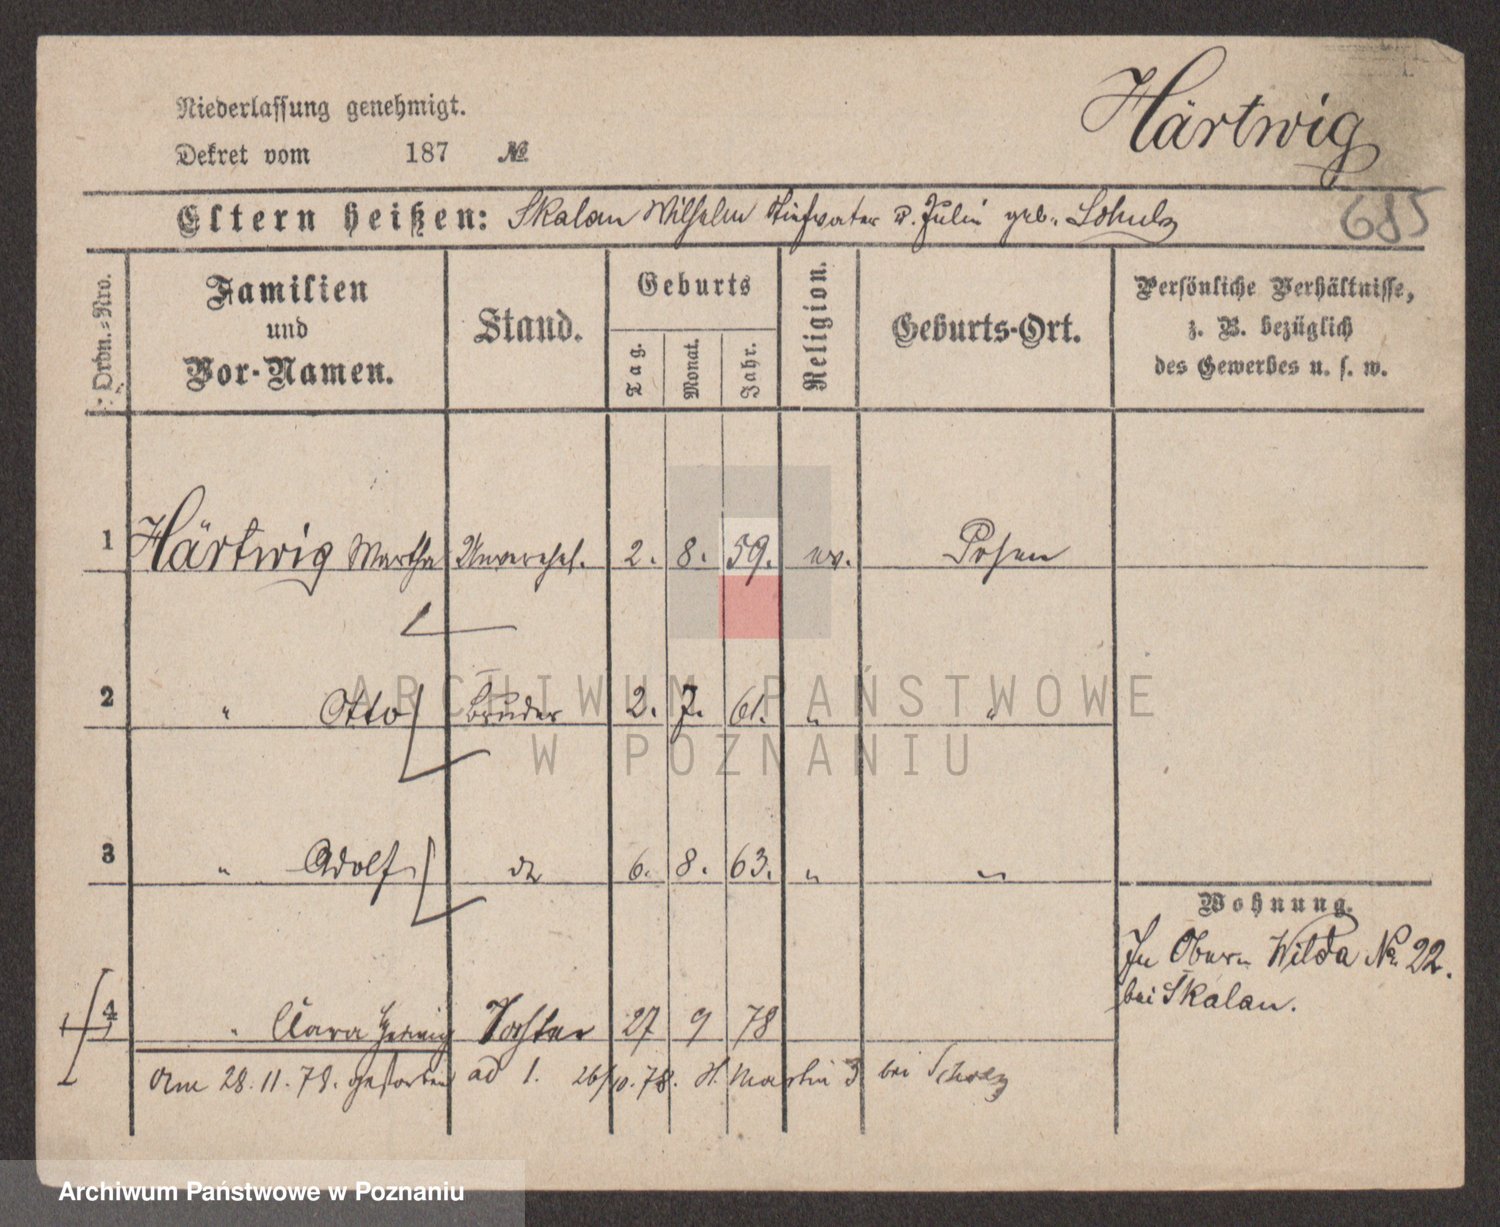 Härtwig
Niederlassung genehmigt.
Dekret vom 187 №
685
Eltern heißen: Skalan Wilhelm Stiefvater u. Julie geb. Scholz
Ordn.=Nro.
Familien und Vor-Namen.
Stand.
Geburts
Tag.
Monat.
Jahr.
Religion.
Geburts-Ort.
Persönliche Verhältnisse,
z. B. bezüglich
des Gewerbes u. s. w.
1 Härtwig Martha Unverehel. 2. 8. 59. ev. Posen
2 " Otto Bruder 2. 7. 61. " "
3 " Adolf do 6. 8. 63. " "
Wohnung.
In Obern Wilda No. 22.
bei Skalan.
4 " Clara Hedwig Tochter 27 9 78
Am 28.11.78. gestorben ad 1. 26/10.78. St. Martin 3 bei Scholz
ARCHIWUM PAŃSTWOWE
W POZNANIU
Archiwum Państwowe w Poznaniu